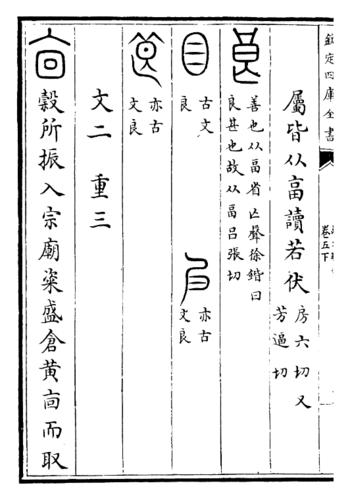 欽定四庫全書
卷五下
屬皆从畗讀若伏
房六切又
芳逼切
善也从畗省亡聲徐鍇曰
良甚也故从畗呂張切
古文
良
亦古
文良
亦古
文良
文二 重三
穀所振入宗廟粢盛倉黄㐭而取